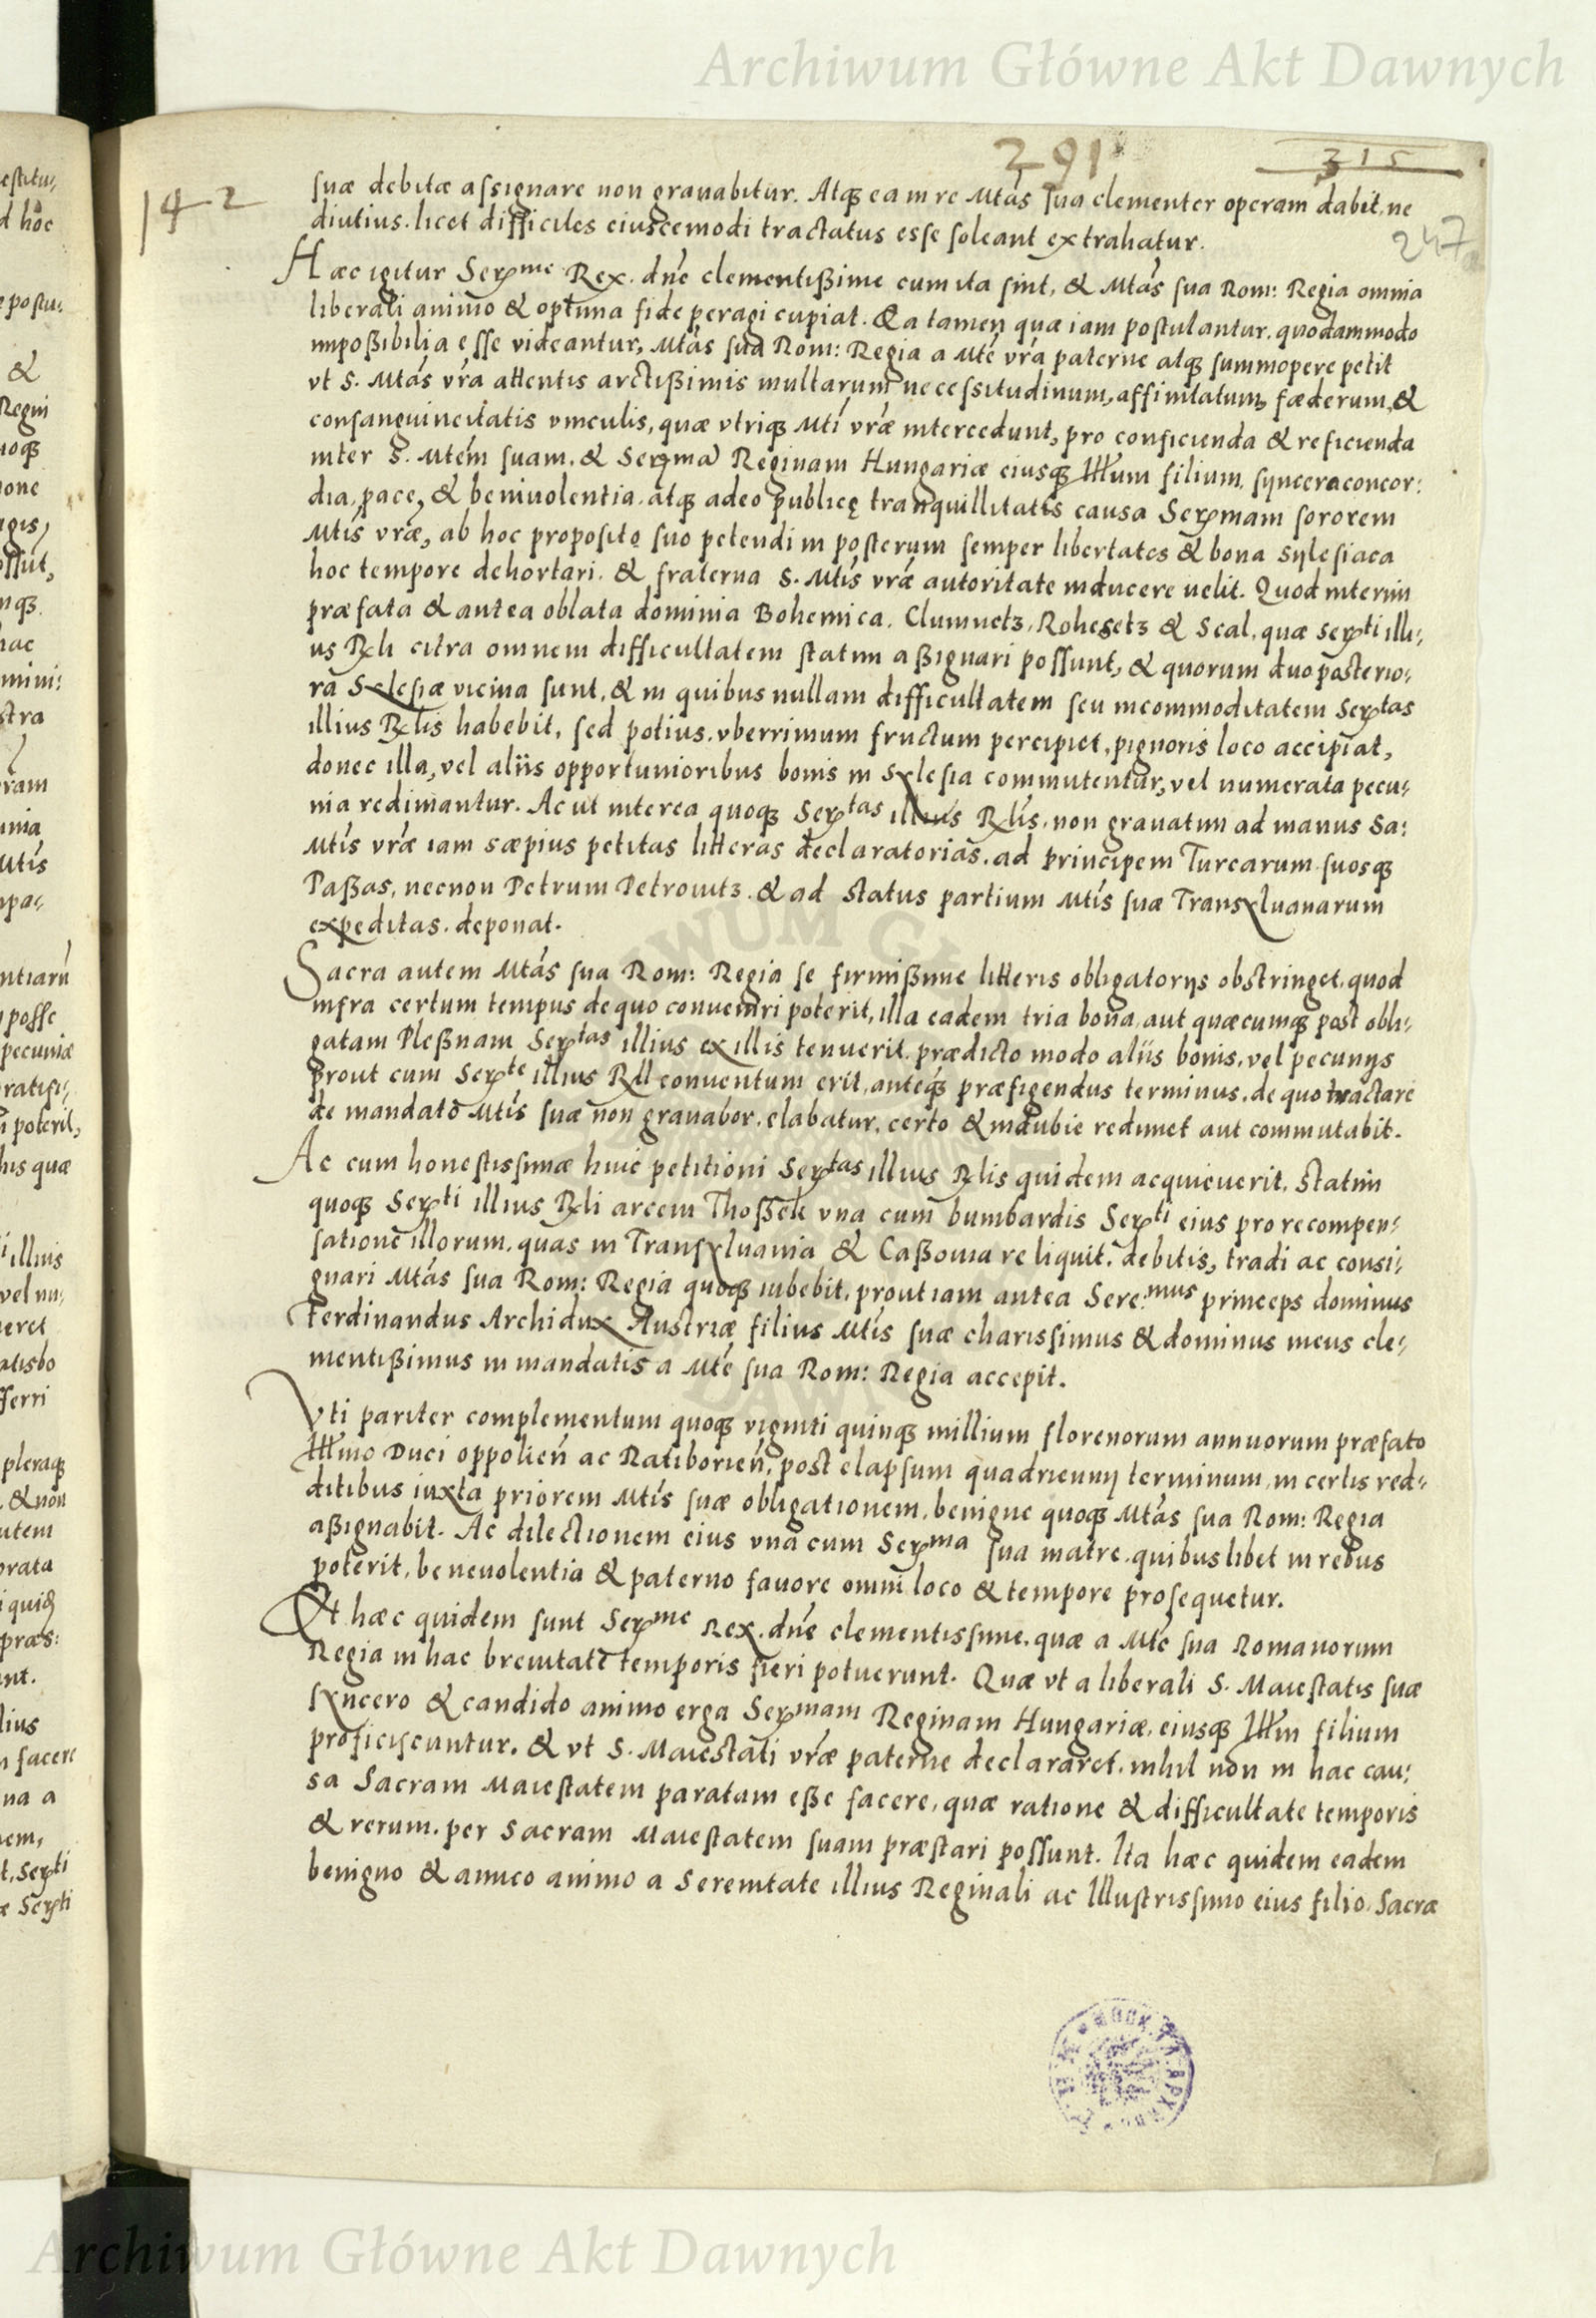 Archiwum Główne Akt Dawnych
291
315
142
247
suæ debitæ assignare non grauabitur. Atq₃ ea in re Mtás sua clementer operam dabit, ne
diutius. licet difficiles eiuscemodi tractatus esse soleant extrahatur.
Hæc igitur Serme Rex. dn̄e clementißime cum ita sint, & Mtás sua Rom: Regia omnia
liberali animo & optima fide peragi cupiat. Ea tamen quæ iam postulantur. quodammodo
impoßibilia esse videantur, Mtás sua Rom: Regia a Mté vrá paterne atq₃ summopere petit
vt S. Mtás vrá attentis arctißimis multarum necessitudinum, affinitatum, fœderum, &
consanguineitatis vinculis, quæ vtriq₃ Mtí vræ intercedunt, pro conficienda & reficienda
inter S. Mtém suam, & Sermā Reginam Hungariæ eiusq₃ Illum filium, syncera concor:
dia, pace, & beniuolentia. atq₃ adeo publicę tranquillitatis causa Sermam sororem
Mtis vræ, ab hoc proposito suo petendi in posterum semper libertates & bona Sylesiaca
hoc tempore dehortari. & fraterna S. Mtis vræ autoritate inducere uelit. Quod interim
præfata & antea oblata dominia Bohemica. Clumnetz, Rohesetz & Scal, quæ Serti illi:
us Rli citra omnem difficultatem statim aßignari possunt, & quorum duo posterio:
ra Sylesiæ vicina sunt, & in quibus nullam difficultatem seu incommoditatem Sertas
illius Rlis habebit, sed potius. vberrimum fructum percipiet, pignoris loco accipiat,
donec illa, vel aliis opportunioribus bonis in Sylesia commutentur, vel numerata pecu:
nia redimantur. Ac ut interea quoq₃ Sertas illius Rlis. non grauatim ad manus Sa:
Mtis vræ iam sæpius petitas litteras declaratorias. ad principem Turcarum suosq₃
Paßas, necnon Petrum Petrouitz. & ad status partium Mtis suæ Transyluanarum
expeditas. deponat.
Sacra autem Mtás sua Rom: Regia se firmißime litteris obligatorijs obstringet, quod
infra certum tempus de quo conueniri poterit, illa eadem tria bona, aut quæcumq₃ post obli:
gatam Pleßnam Sertas illius ex illis tenuerit. prædicto modo aliis bonis, vel pecunijs
prout cum Serte illius Rli conuentum erit, anteq́₃ præfigendus terminus. de quo tractare
de mandato Mtis suæ non grauabor. elabatur, certo & indubie redimet aut commutabit.
Ac cum honestissimæ huic petitioni Sertas illius Rlis quidem acquieuerit, Statim
quoq₃ Serti illius Rli arcem Thoßek vna cum bumbardis Serti eius pro recompen:
satione illorum. quas in Transyluania & Caßouia reliquit. debitis, tradi ac consi:
gnari Mtás sua Rom: Regia quoq₃ iubebit, prout iam antea Sere:mus princeps dominus
Ferdinandus Archidux Austriæ filius Mtis suæ charissimus & dominus meus cle:
mentißimus in mandatis a Mté sua Rom: Regia accepit.
Vti pariter complementum quoq₃ viginti quinq₃ millium florenorum annuorum præfato
Illmo Duci oppolien̄ ac Ratiborien̄, post elapsum quadriennij terminum, in certis red:
ditibus iuxta priorem Mtis suæ obligationem, benigne quoq₃ Mtás sua Rom: Regia
aßignabit. Ac dilectionem eius vna cum Serma sua matre. quibus libet in rebus
poterit, beneuolentia & paterno fauore omni loco & tempore prosequetur.
Et hæc quidem sunt Serme Rex. dn̄e clementissime. quæ a Mté sua Romanorum
Regia in hac breuitate temporis fieri potuerunt. Quæ vt a liberali S. Maiestatis suæ
syncero & candido animo erga Sermam Reginam Hungariæ, eiusq₃ Illm filium
proficiscuntur. & vt S. Maiestati vræ paterne declararet. nihil non in hac cau:
sa Sacram Maiestatem paratam eße facere, quæ ratione & difficultate temporis
& rerum. per Sacram Maiestatem suam præstari possunt. Ita hæc quidem eadem
benigno & amico animo a Serenitate illius Reginali ac Illustrissimo eius filio. Sacræ
Archiwum Główne Akt Dawnych